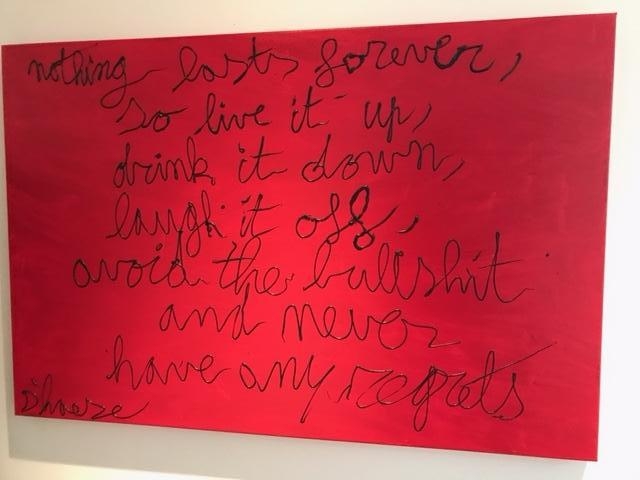 nothing lasts forever,
so live it up,
drink it down,
laugh it off,
avoid the bullshit
and never
have any regrets